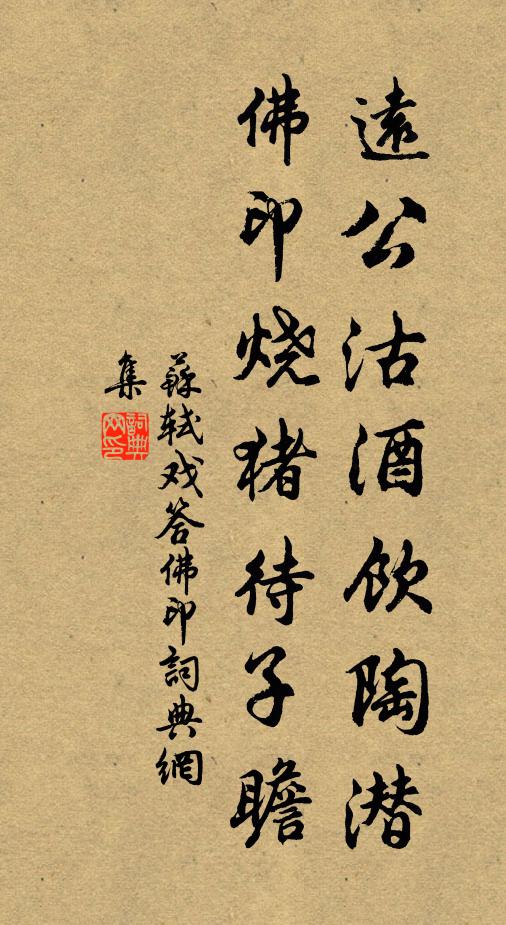 遠公沽酒飲陶潜
佛印烧猪待子瞻
蘇軾戏答佛印詞典網
集
詞典
网印